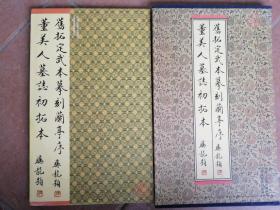 舊拓定武本摹刻蘭亭序
董美人墓誌初拓本
舊拓定武本摹刻蘭亭序
董美人墓誌初拓本